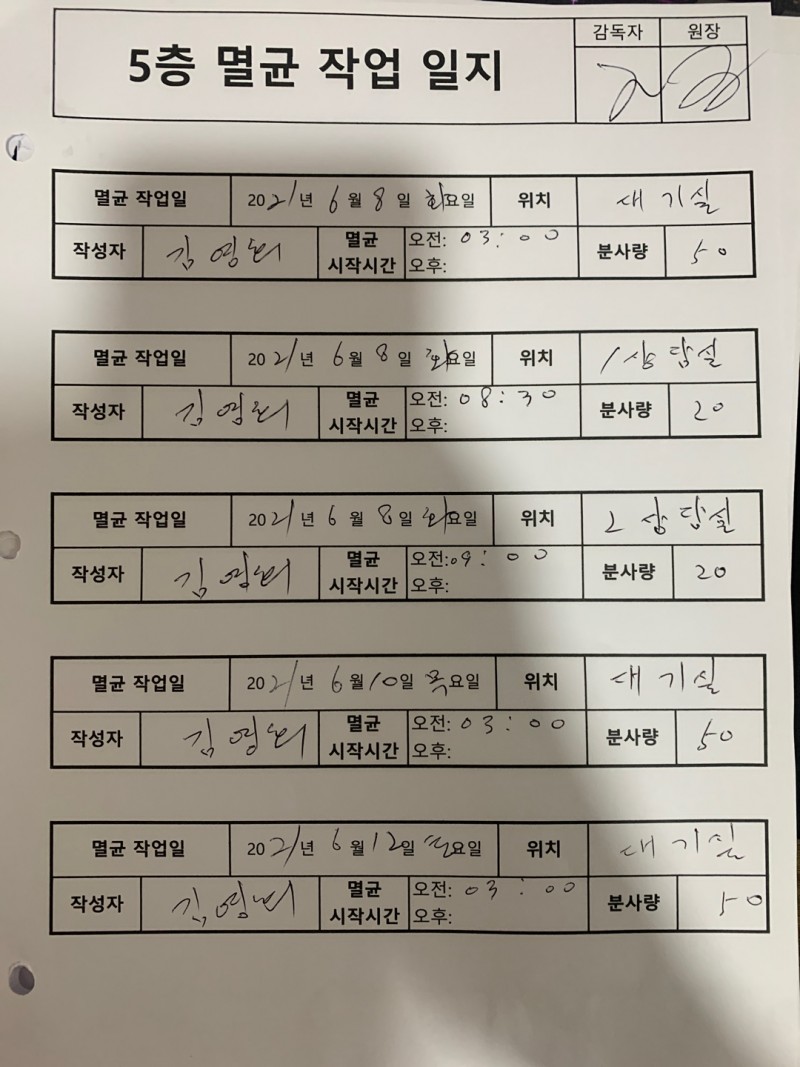 5층 멸균 작업 일지
감독자 원장
멸균 작업일 2021년 6월 8일 화요일 위치 대기실
작성자 김영희 멸균 시작시간 오전: 03:00 분사량 50
오후:
멸균 작업일 2021년 6월 8일 화요일 위치 1상담실
작성자 김영희 멸균 시작시간 오전: 08:30 분사량 20
오후:
멸균 작업일 2021년 6월 8일 화요일 위치 2상담실
작성자 김영희 멸균 시작시간 오전: 09:00 분사량 20
오후:
멸균 작업일 2021년 6월 10일 목요일 위치 대기실
작성자 김영희 멸균 시작시간 오전: 03:00 분사량 50
오후:
멸균 작업일 2021년 6월 12일 요일 위치 대기실
작성자 김영희 멸균 시작시간 오전: 03:00 분사량 50
오후: